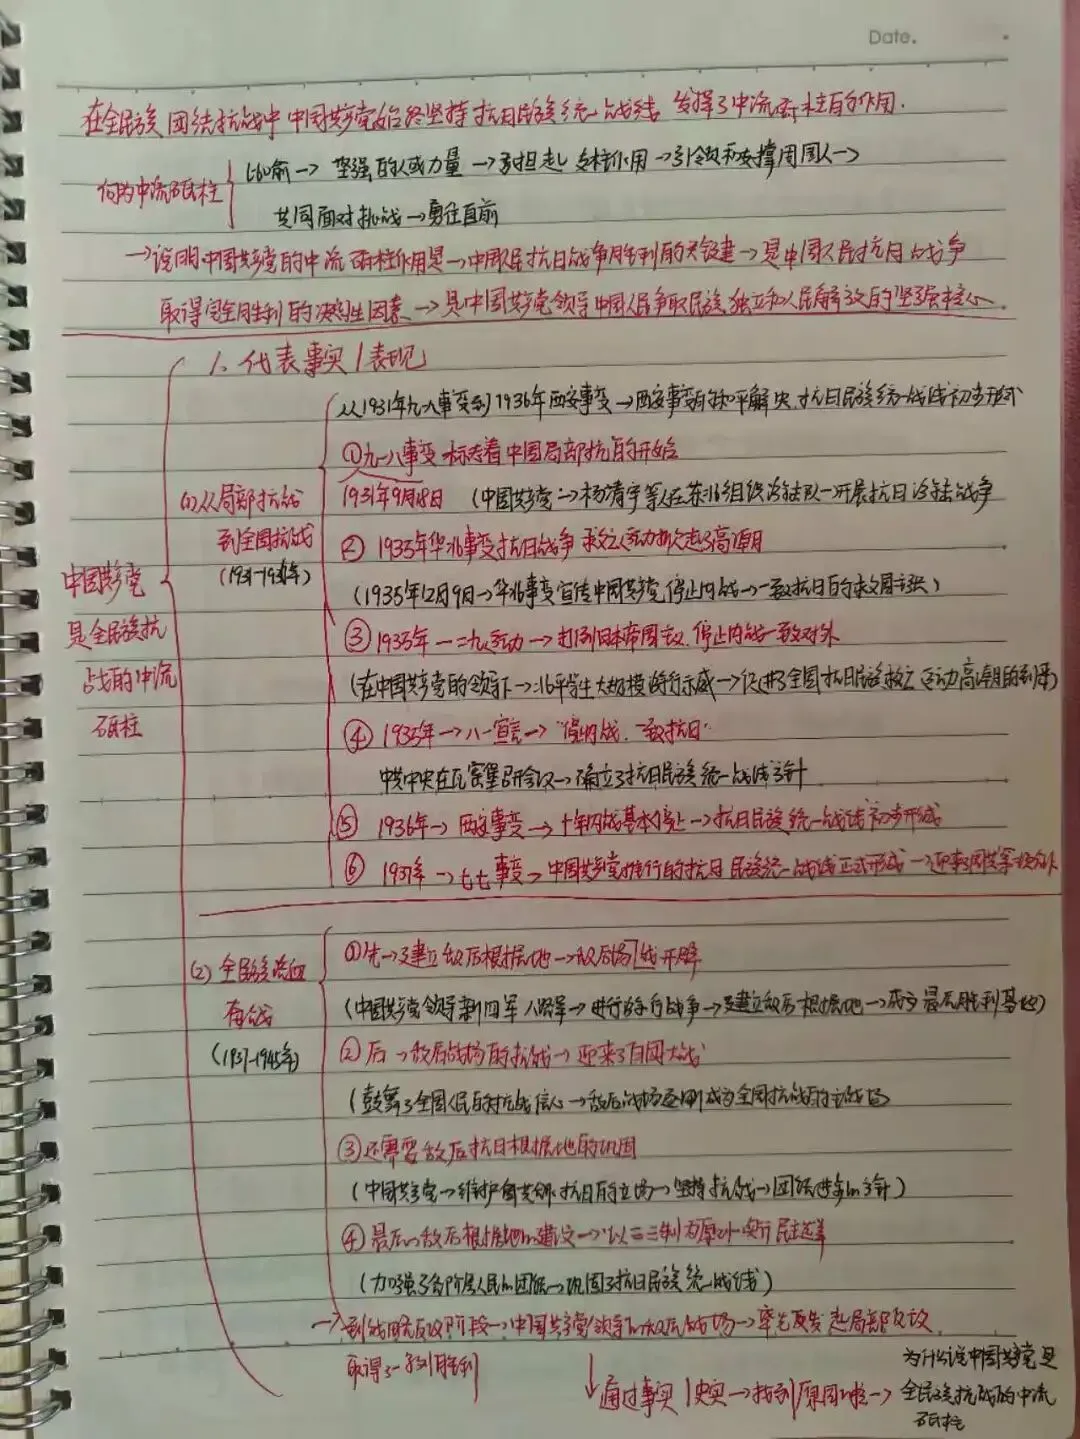 Date.
在全民族团结抗战中中国共产党始终坚持抗日民族统一战线,发挥了中流砥柱的作用.
何为中流砥柱
比喻→坚强的人或力量→承担起支柱作用→引领和支撑周围人→
共同面对挑战→勇往直前
→说明中国共产党的中流砥柱作用是→中国人民抗日战争胜利的关键→是中国人民抗日战争
取得完全胜利的决定性因素→是中国共产党领导中国人民争取民族独立和人民解放的坚强核心.
1. 代表事实/表现
从1931年九一八事变到1936年西安事变→西安事变的和平解决,抗日民族统一战线初步形成
①九一八事变标志着中国局部抗日的开始
(1)从局部抗战
1931年9月18日 (中国共产党→杨靖宇等人在东北组织游击队→开展抗日游击战争
到全国抗战
②1935年华北事变抗日战争救亡运动掀起了高潮
(1931-1937年)
中国共产党
(1935年12月9日→华北事变宣传中国共产党停止内战→一致抗日的救国主张)
是全民族抗
③1935年一二九运动→打倒日本帝国主义,停止内战一致对外
战的中流
(在中国共产党的领导下→北平学生大规模游行示威→促进了全国抗日民族救亡运动高潮的到来)
砥柱
④1935年→八一宣言→“停止内战,一致抗日”
中共中央在瓦窑堡召开会议→确立了抗日民族统一战线方针
⑤1936年→西安事变→十年内战基本停止→抗日民族统一战线初步形成
⑥1937年→七七事变→中国共产党推行的抗日民族统一战线正式形成→迎来了国共第二次合作
①先→建立敌后根据地→敌后战场开辟
(2)全民族浴血
奋战
(中国共产党领导新四军八路军→进行游击战争→建立敌后根据地→成了最后胜利基地)
(1937-1945年)
②后→敌后战场的抗战→迎来了百团大战
(鼓舞了全国人民的抗战信心→敌后战场逐渐成为全国抗战的主战场
③还需要敌后抗日根据地的巩固
(中国共产党→维护国共抗日的立场→坚持抗战→团结进步的方针)
④最后→敌后根据地的建设→以三三制为原则实行民主选举
(加强了各阶层人民的团结→巩固了抗日民族统一战线)
→到战略反攻阶段→中国共产党领导的敌后战场→率先发起局部反攻.
取得了一系列胜利
为什么说中国共产党是
↓通过事实/史实→找到原因→全民族抗战的中流
砥柱